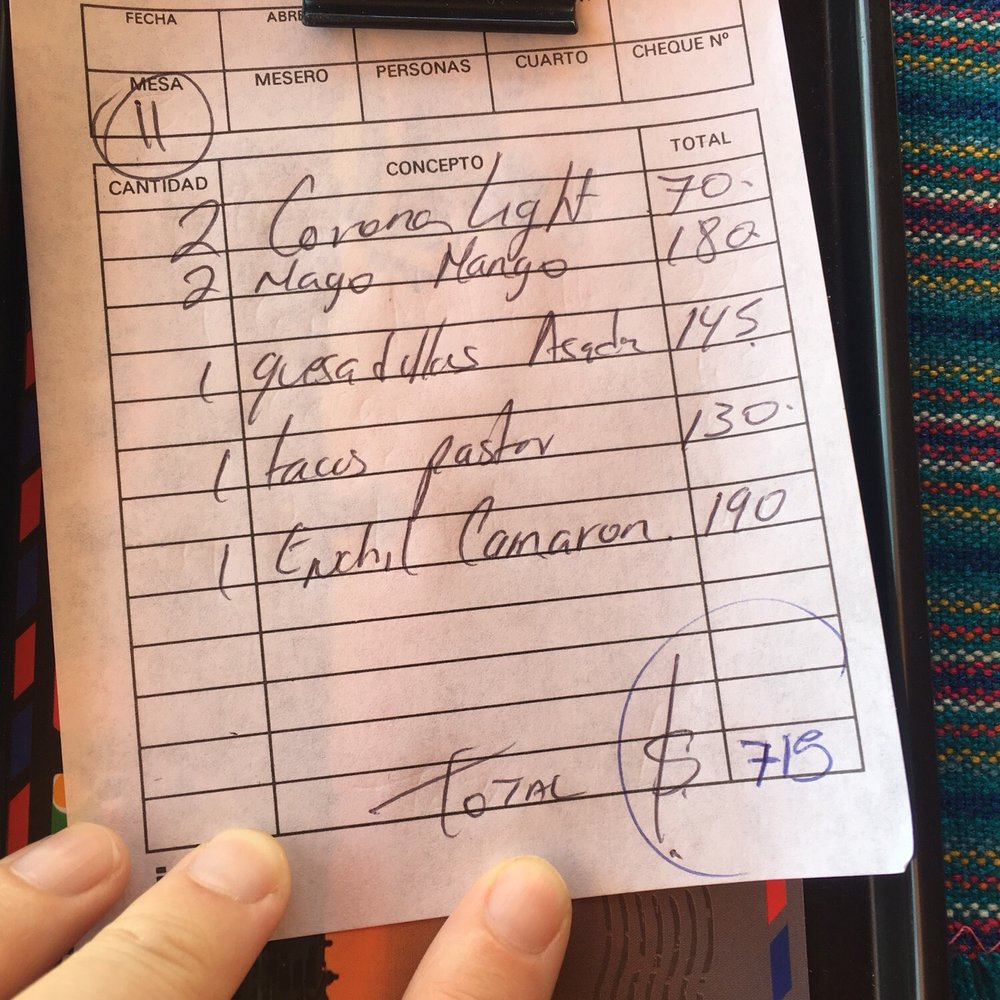 FECHA ABRE
MESA MESERO PERSONAS CUARTO CHEQUE Nº
11
CANTIDAD CONCEPTO TOTAL
2 Corona Light 70.
2 Mago Mango 180
1 quesadillas Asada 145.
1 tacos pastor 130.
1 Enchil Camaron. 190
TOTAL $ 715